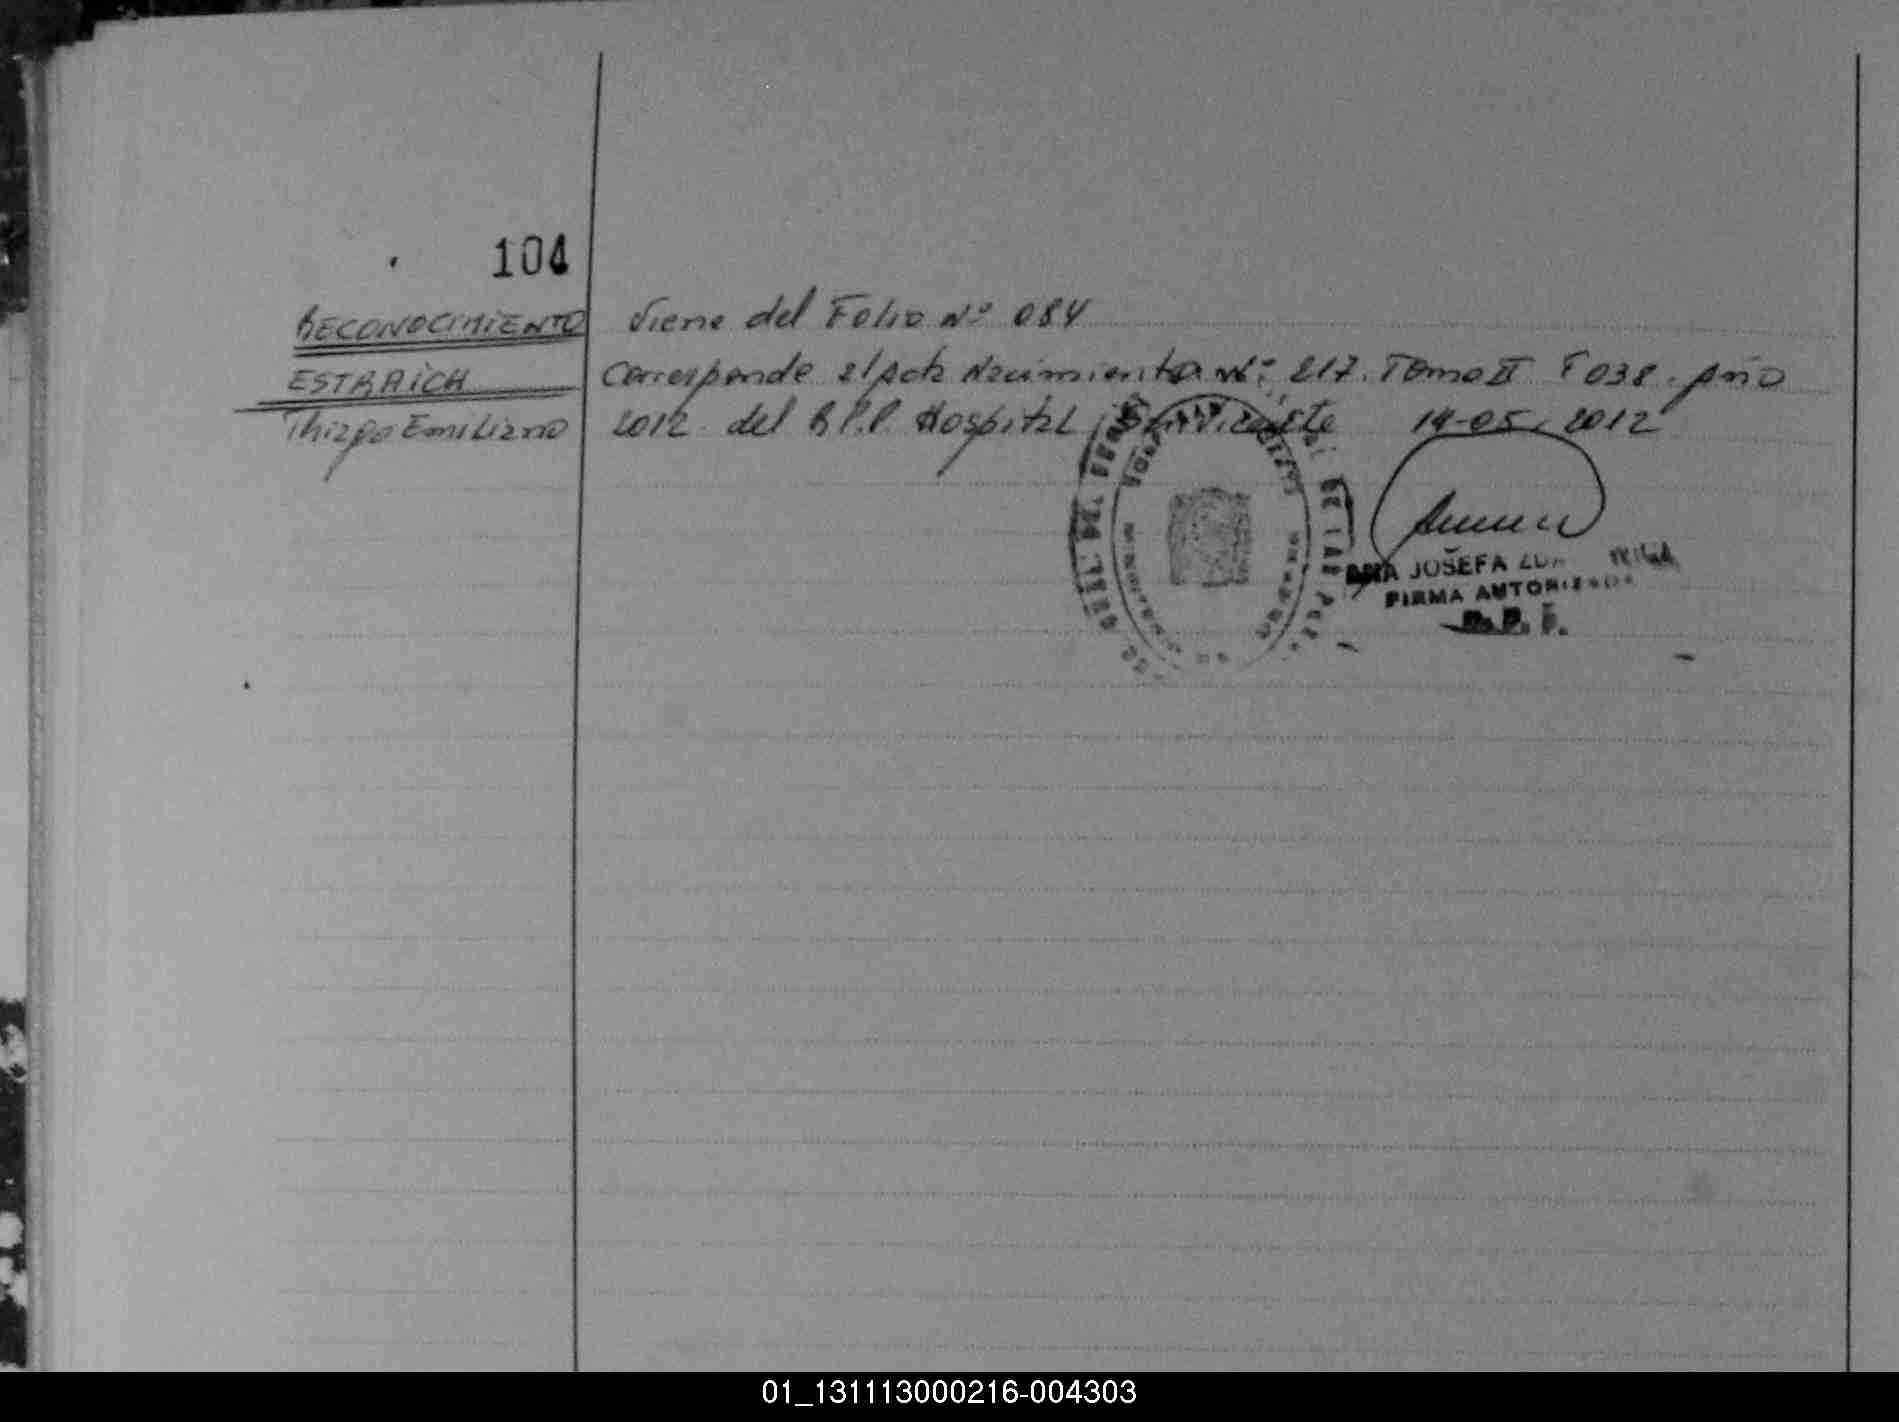 104
RECONOCIMIENTO
Viene del Folio Nº 084
ESTRAICH
Corresponde al Acta Nacimiento Nº: 217. Tomo II F 038. Año
Thiago Emiliano
2012 del R.P.P. Hospital San Vicente 14-05-2012
ANA JOSEFA
FIRMA AUTORIZADA
01_131113000216-004303